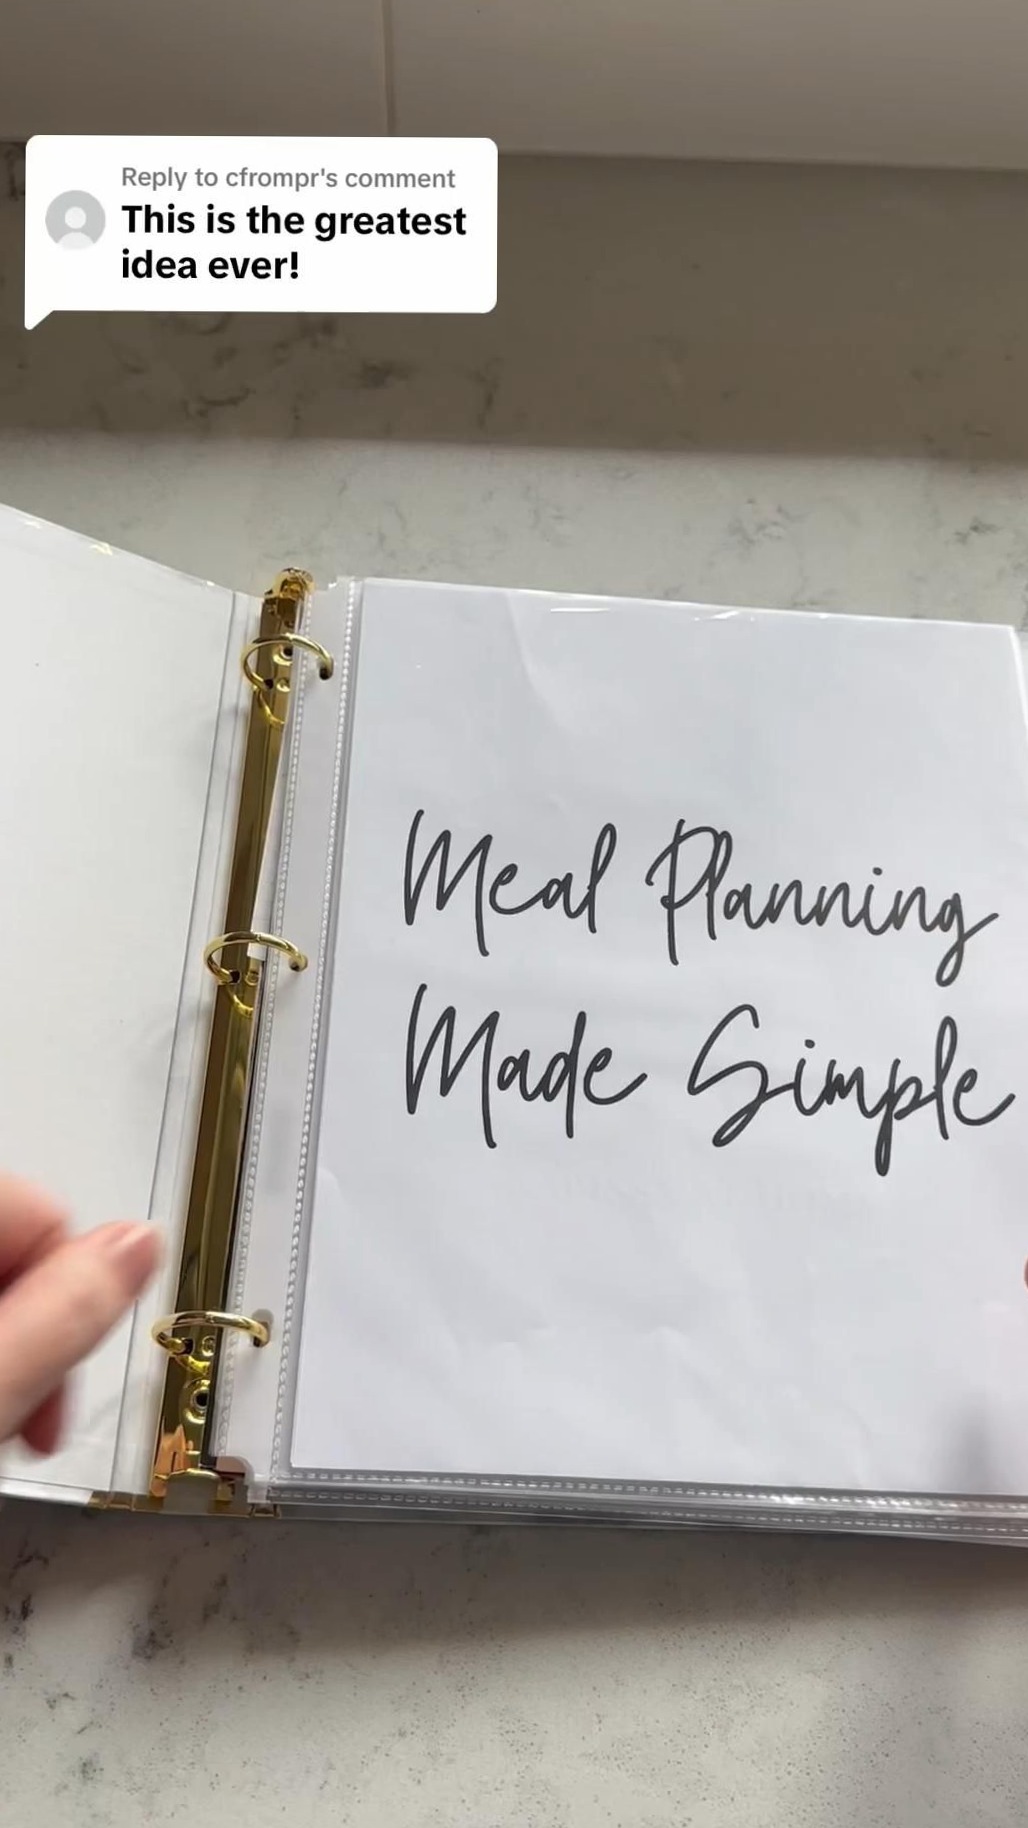 Reply to cfrompr's comment
This is the greatest
idea ever!
Meal Planning
Made Simple